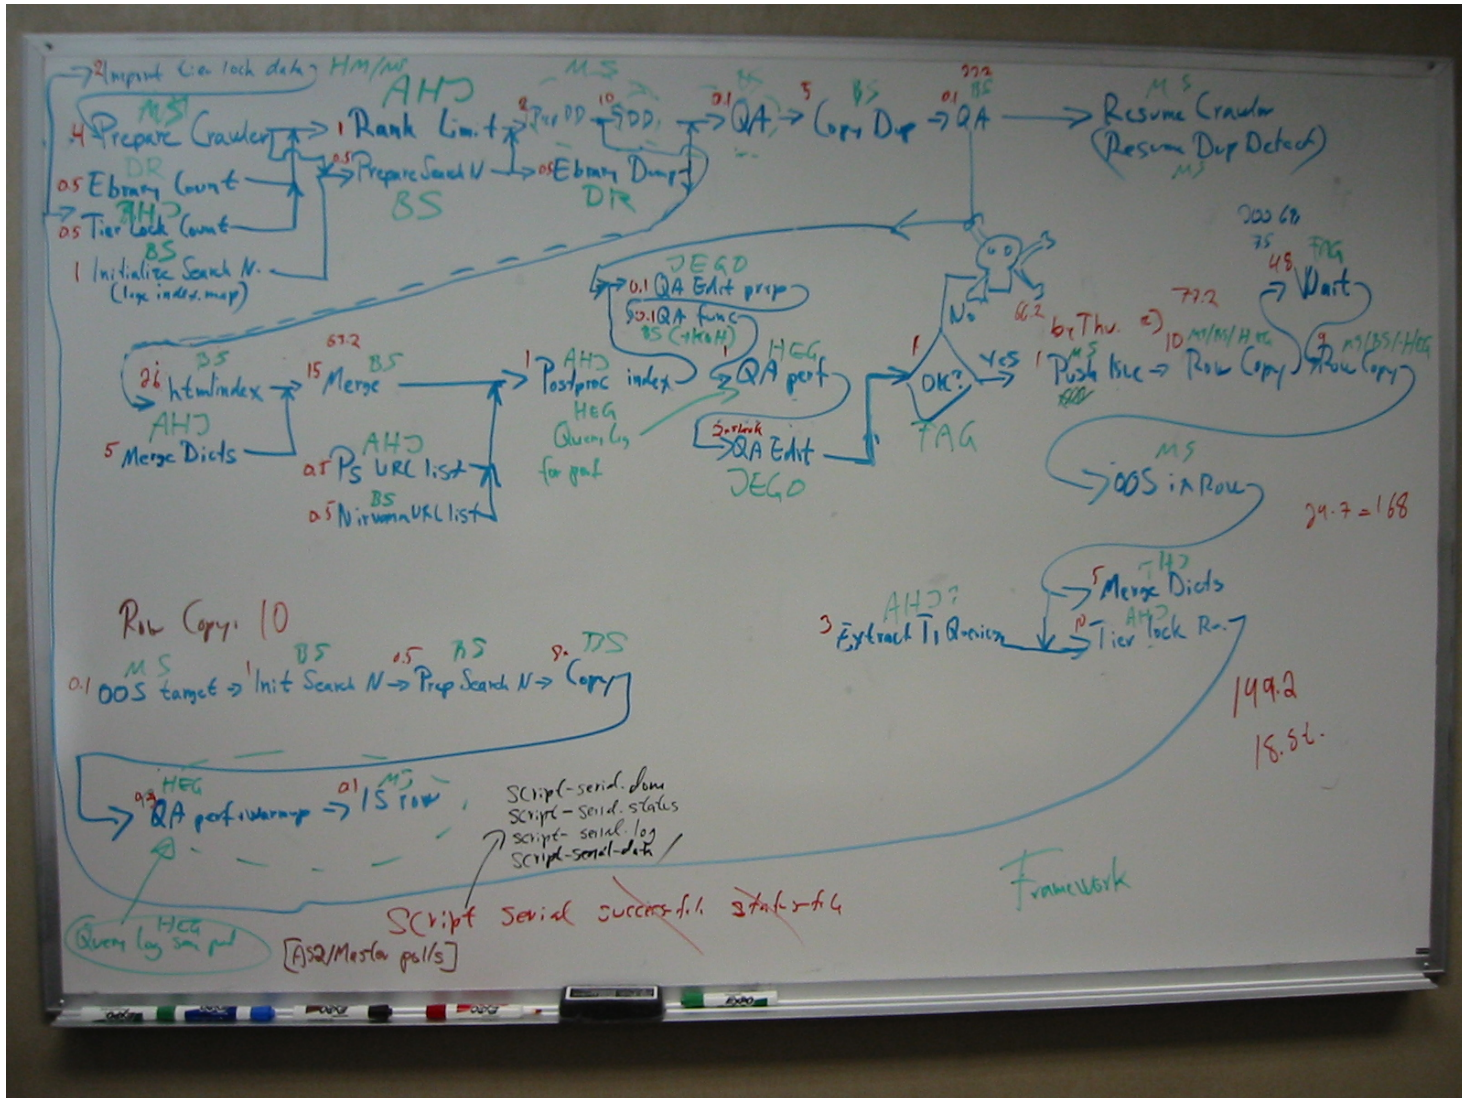 2 Import tier lock data HM/MS
MS
4 Prepare Crawler
DR
0.5 Ebrary Count
AHJ
0.5 Tier Lock Count
BS
1 Initialize Search N.
AHJ
1 Rank Limit
0.5 Prepare Search N
BS
MS
2 Prep DD
10
0.5 Ebrary Dump
DR
BS
0.1 QA
5 BS
Copy Dup
BS
0.1 QA
MS
Resume Crawler
(Resume Dup Detect)
MS
BS
htmlindex
AHJ
5 Merge Dicts
BS
15 Merge
AHJ
0.5 Ps URL list
BS
0.5 Nirvana URL list
1 AHJ
Postproc index
HEG
Query log
for perf
JEGO
0.1 QA Edit prep
0.1 QA func
1 HEG
QA perf
QA Edit
JEGO
No
1
OK?
YES
FAG
66.2
by Thu.
1 MS
Push live
77.2
10 MS/BS/HEG
Row Copy
300 68
75
48 FAG
Wait
9 MS/BS/HEG
Row Copy
MS
OOS in Row
24·7=168
5
Merge Dicts
AHJ
10 Tier lock
AHJ?
3 Extract T1 Queries
149.2
Row Copy: 10
MS
0.1 OOS target
1 BS
Init Search N
0.5 BS
Prep Search N
BS
Copy
HEG
QA perf+warmup
0.1 MS
IS row
script-serial.done
script-serial.status
script-serial.log
script-serial-data
script serial successful status file
[AS2/Master polls]
HEG
Query log
Framework
EXPO